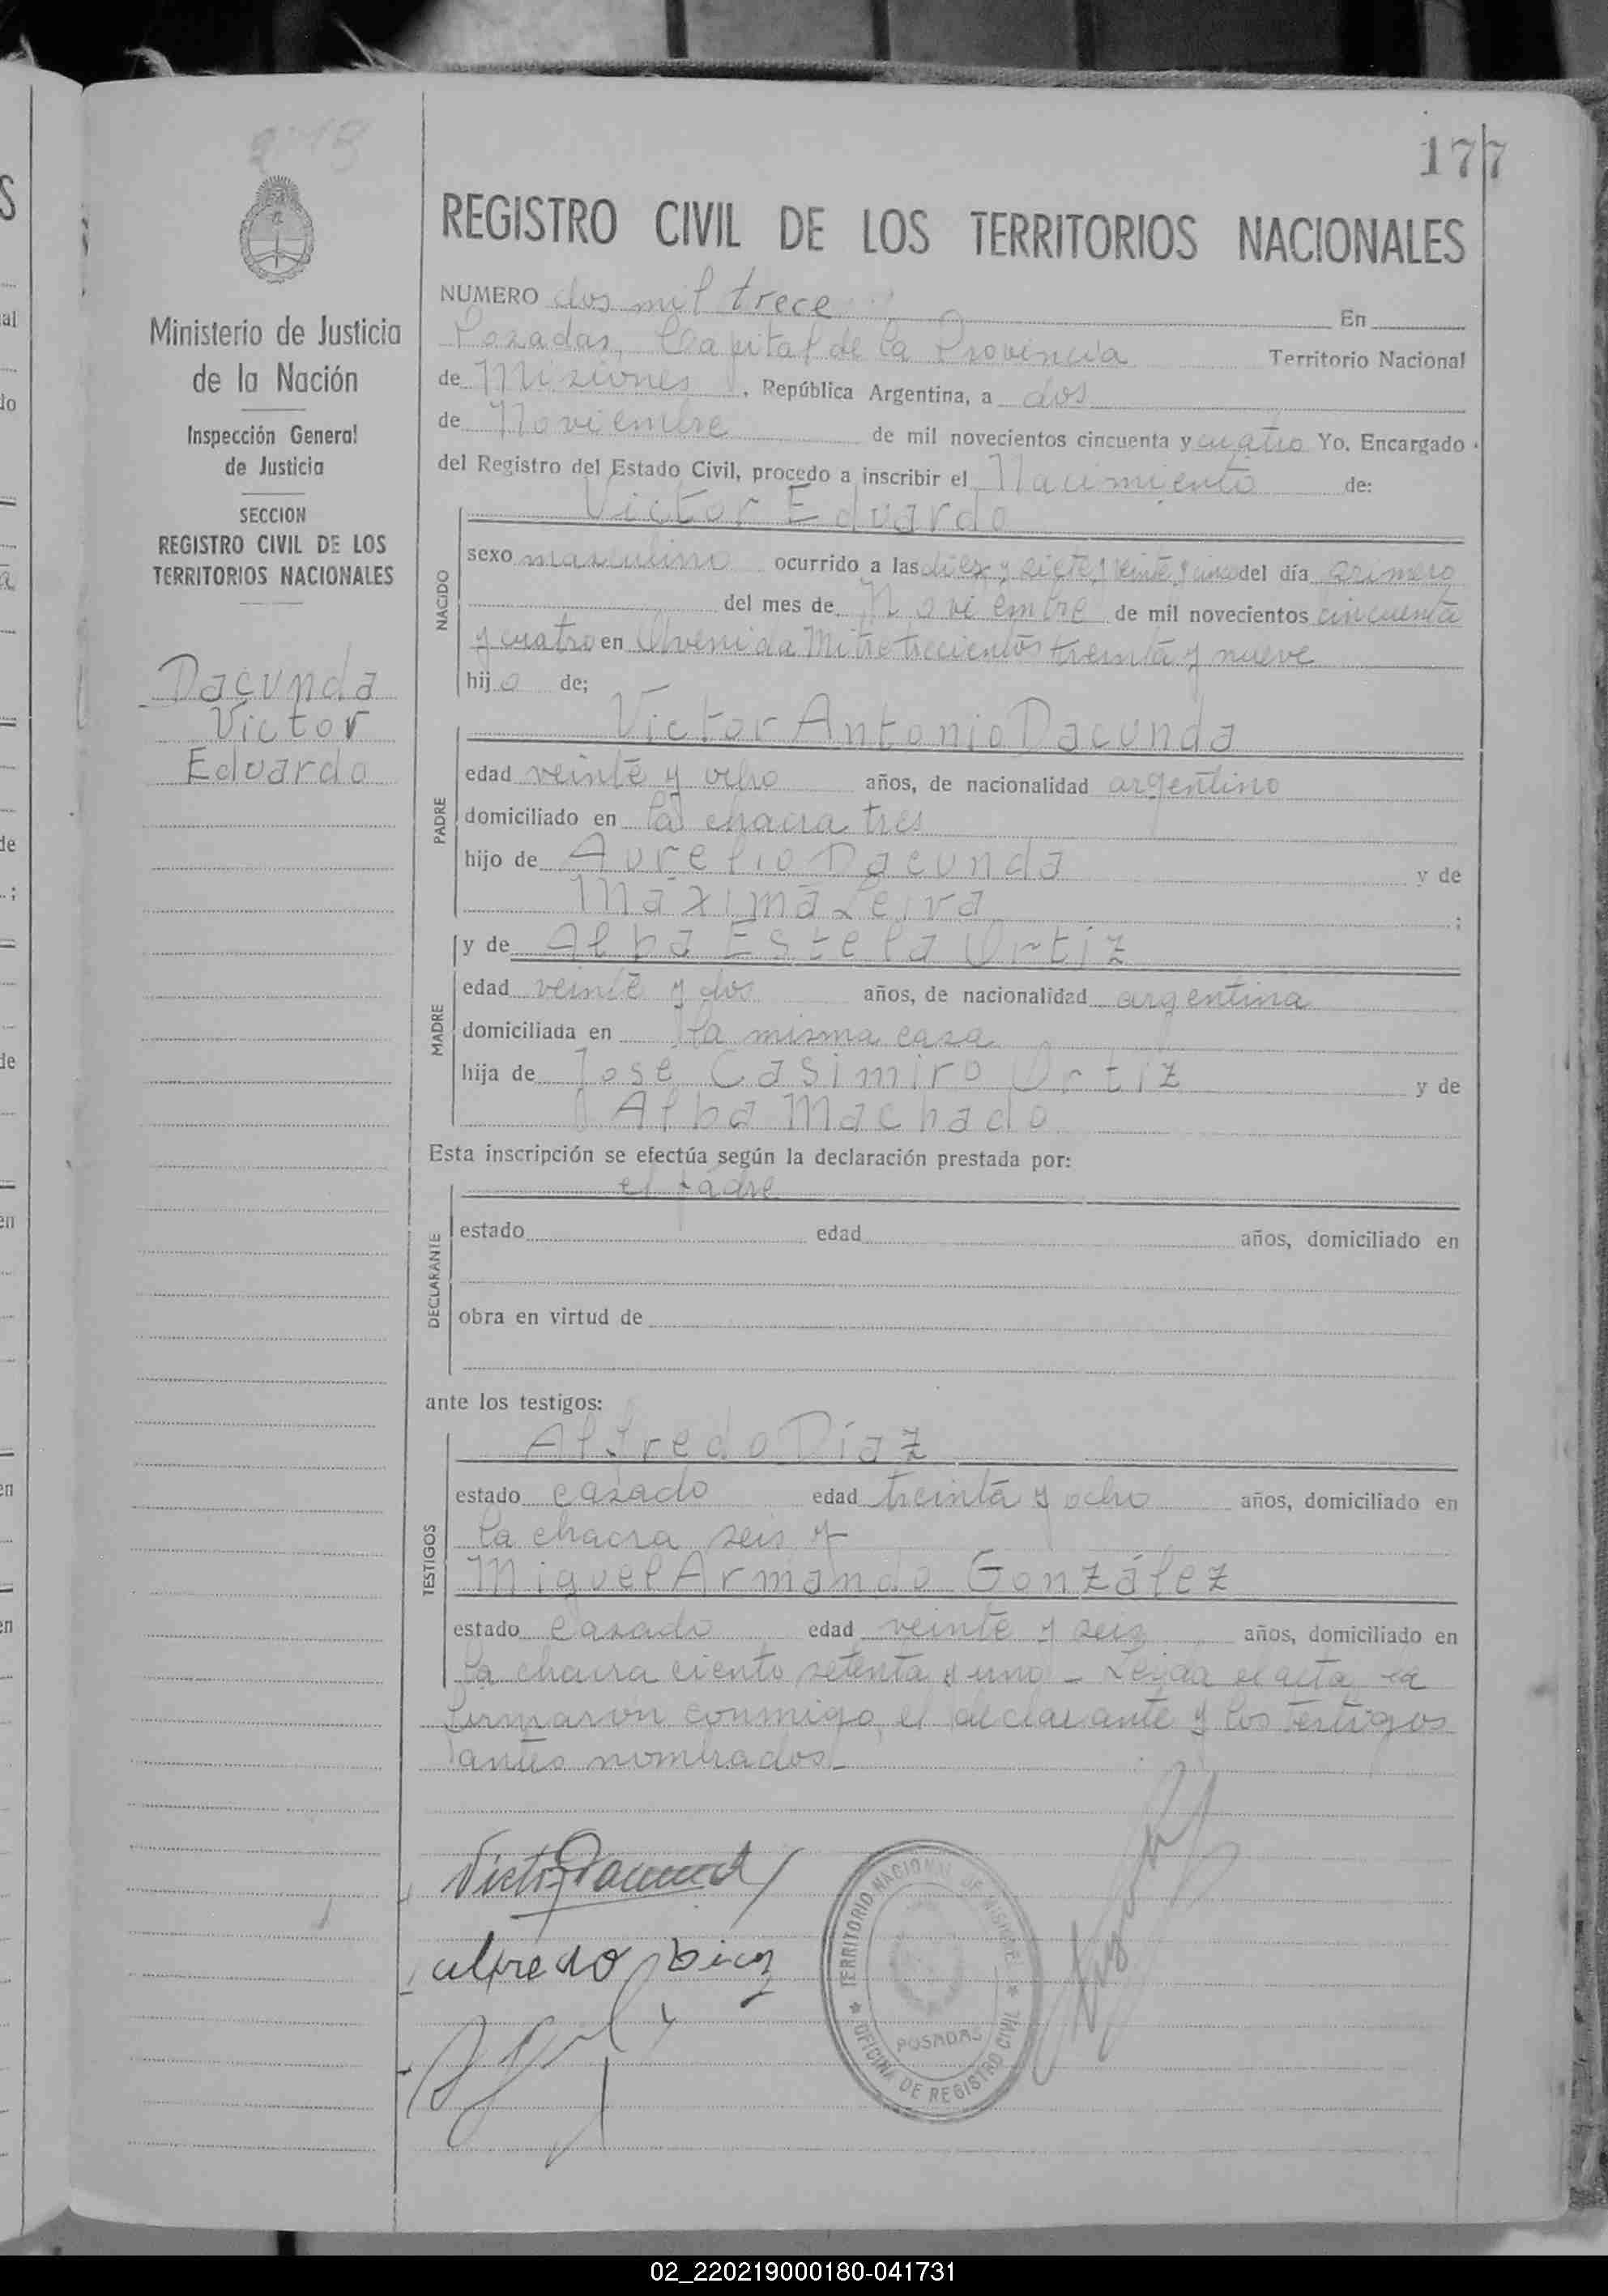 177
REGISTRO CIVIL DE LOS TERRITORIOS NACIONALES
Ministerio de Justicia
de la Nación
Inspección General
de Justicia
SECCION
REGISTRO CIVIL DE LOS
TERRITORIOS NACIONALES
Dacunda
Victor
Eduardo
NUMERO dos mil trece En
Posadas, Capital de la Provincia Territorio Nacional
de Misiones, República Argentina, a dos
de Noviembre de mil novecientos cincuenta y cuatro Yo. Encargado
del Registro del Estado Civil, procedo a inscribir el Nacimiento de:
NACIDO
Victor Eduardo
sexo masculino ocurrido a las diez y siete y veinte y cinco del día primero
del mes de Noviembre de mil novecientos cincuenta
y cuatro en Avenida Mitre trecientos treinta y nueve
hijo de;
PADRE
Victor Antonio Dacunda
edad veinte y ocho años, de nacionalidad argentino
domiciliado en la chacra tres
hijo de Aurelio Dacunda y de
Maxima Leiva ;
MADRE
y de Alba Estela Ortiz
edad veinte y dos años, de nacionalidad argentina
domiciliada en la misma casa
hija de José Casimiro Ortiz y de
Alba Machado
Esta inscripción se efectúa según la declaración prestada por:
DECLARANTE
el padre
estado edad años, domiciliado en
obra en virtud de
ante los testigos:
TESTIGOS
Alfredo Díaz
estado casado edad treinta y ocho años, domiciliado en
la chacra seis y
Miguel Armando González
estado casado edad veinte y seis años, domiciliado en
la chacra ciento setenta y uno - Leida el acta, la
firmaron conmigo, el declarante y los testigos
antes nombrados.-
Victor Dacunda
alfredo Diaz
TERRITORIO NACIONAL DE MISIONES
POSADAS
OFICINA DE REGISTRO CIVIL
02_220219000180-041731